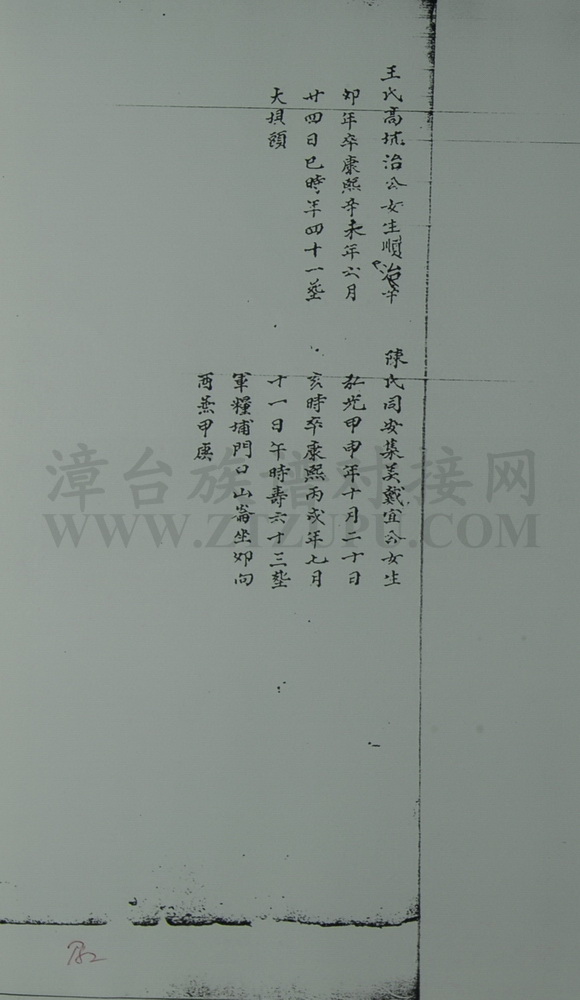 王氏高坑治公女生順治辛
卯年卒康熙辛未年六月
廿四日巳時年四十一塟
大垻頭
陳氏同安集美戴宜公女生
弘光甲申年十月二十日
亥時卒康熙丙戌年七月
十一日午時壽六十三塟
軍糧埔門口山崙坐卯向
酉兼甲庚
漳台族谱对接网
WWW.ZTZUPU.COM